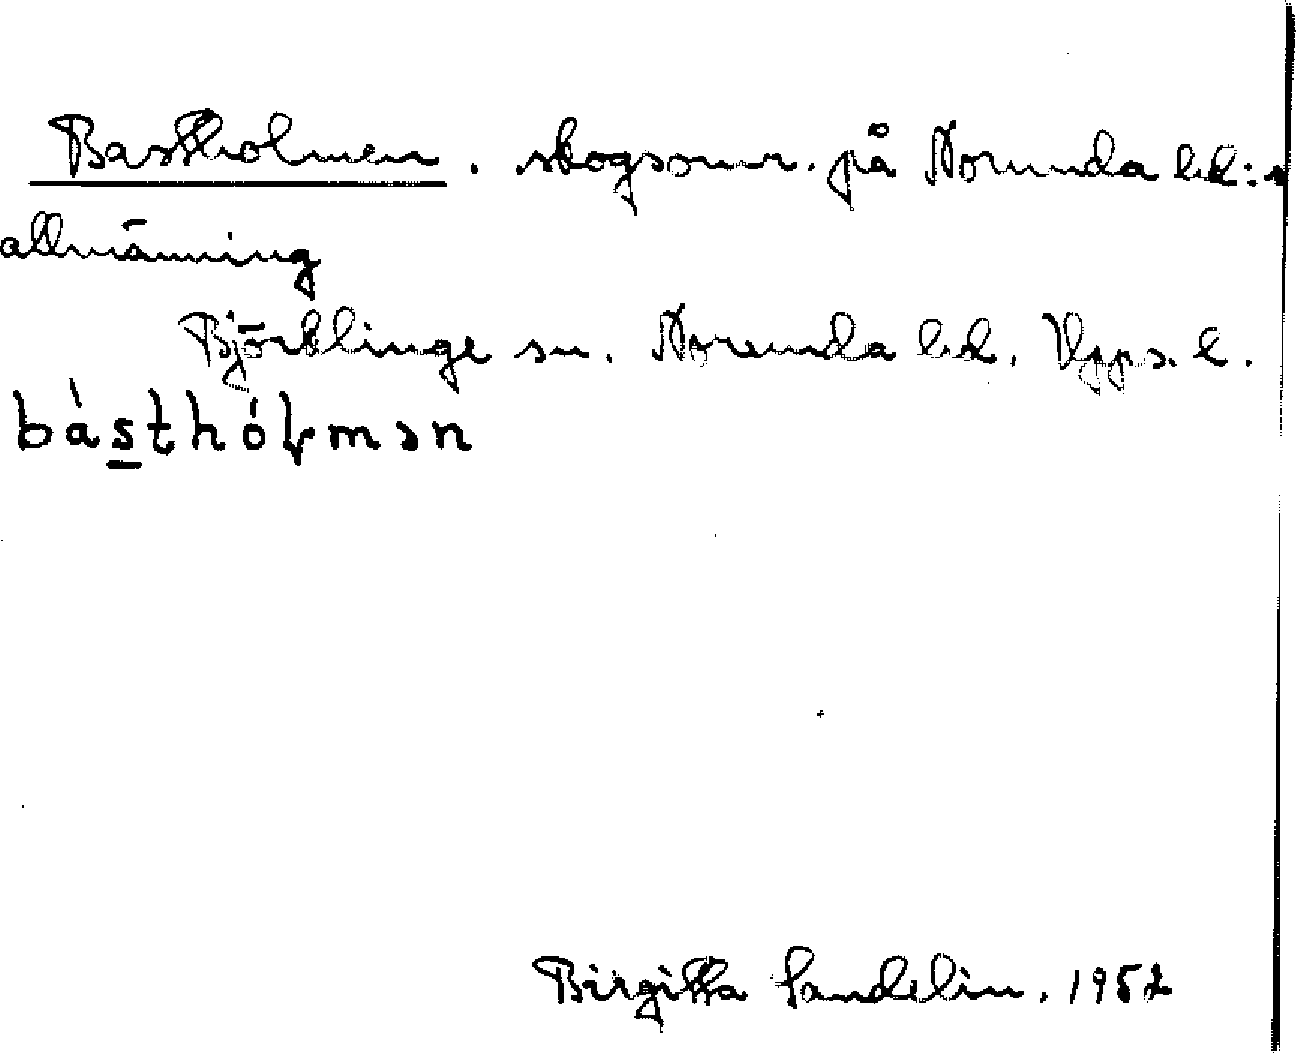 Bastholmen. skogsomr. på Norunda hd:s
allmänning
Björklinge sn. Norunda hd. Upps. l.
básthóɫmən
Birgitta Sandelin. 1952